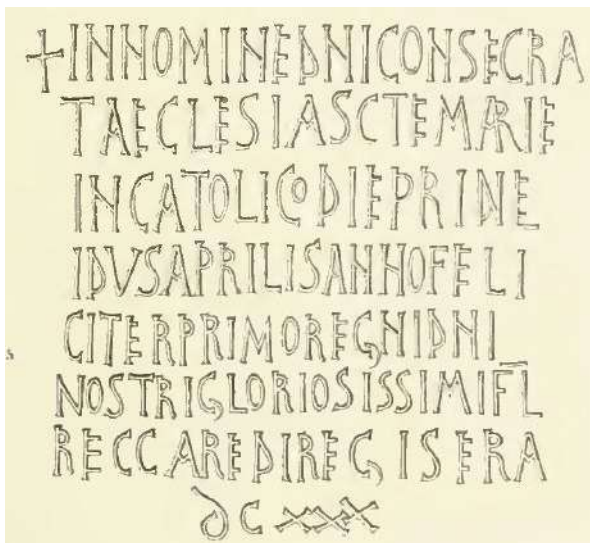 +INNOMINEDNICONSECRA
TAECLESIASCTEMARIE
INCATOLICODIEPRINE
IDVSAPRILISANNOFELI
CITERPRIMOREGNIDNI
NOSTRIGLORIOSISSIMIFL
RECCAREDIREGISERA
DCXXX